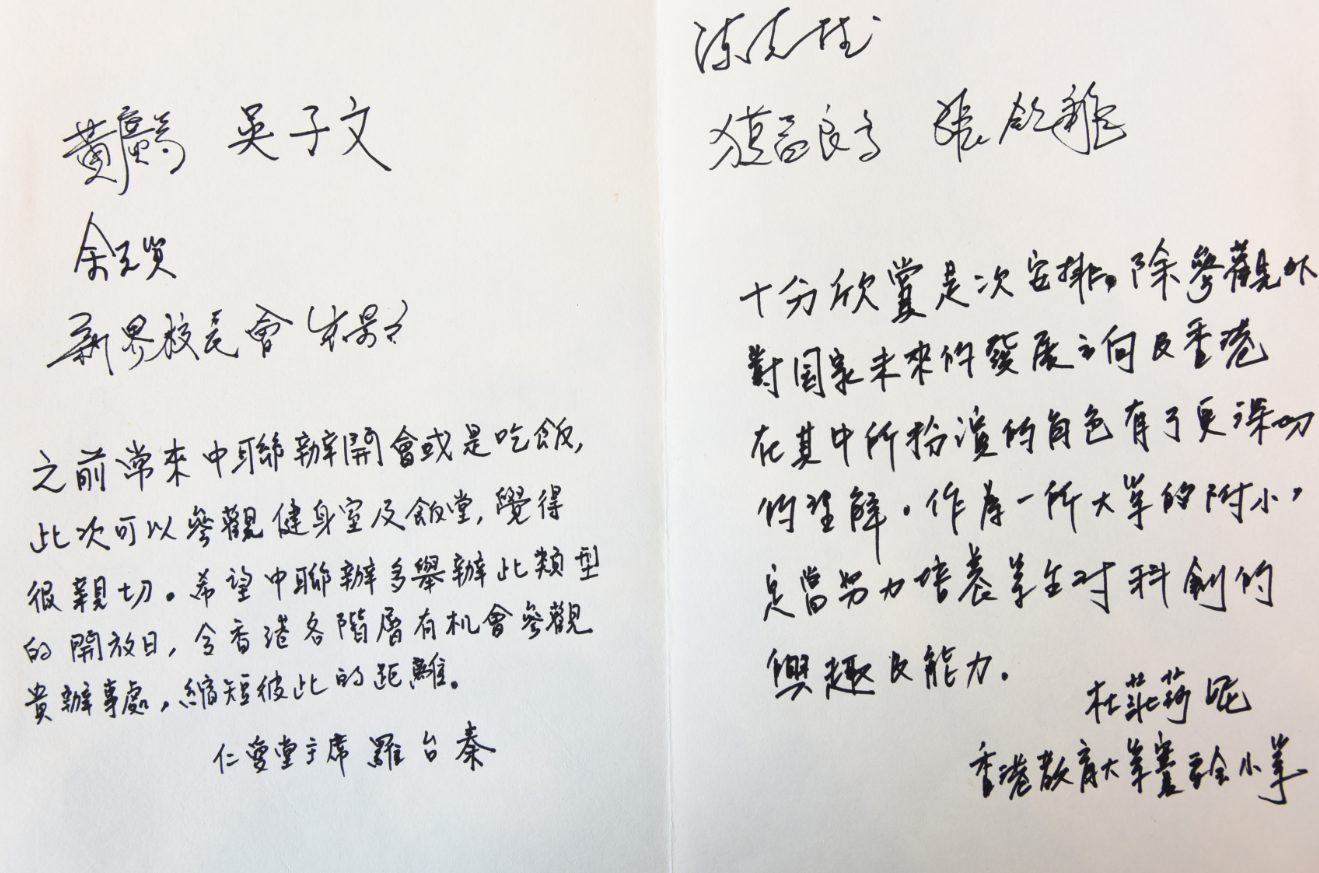 吳子文
新界校長會
之前常來中聯辦開會或是吃飯,
此次可以參觀健身室及飯堂,覺得
很親切。希望中聯辦多舉辦此類型
的開放日,令香港各階層有机會參觀
貴辦事處,縮短彼此的距離。
仁愛堂主席 羅台秦
十分欣賞是次安排,除參觀外
對国家未來的發展方向及香港
在其中所扮演的角色有了更深切
的理解。作為一所大學的附小,
定當努力培養學生对科創的
興趣及能力。
杜莊莎妮
香港教育大學賽馬會小學